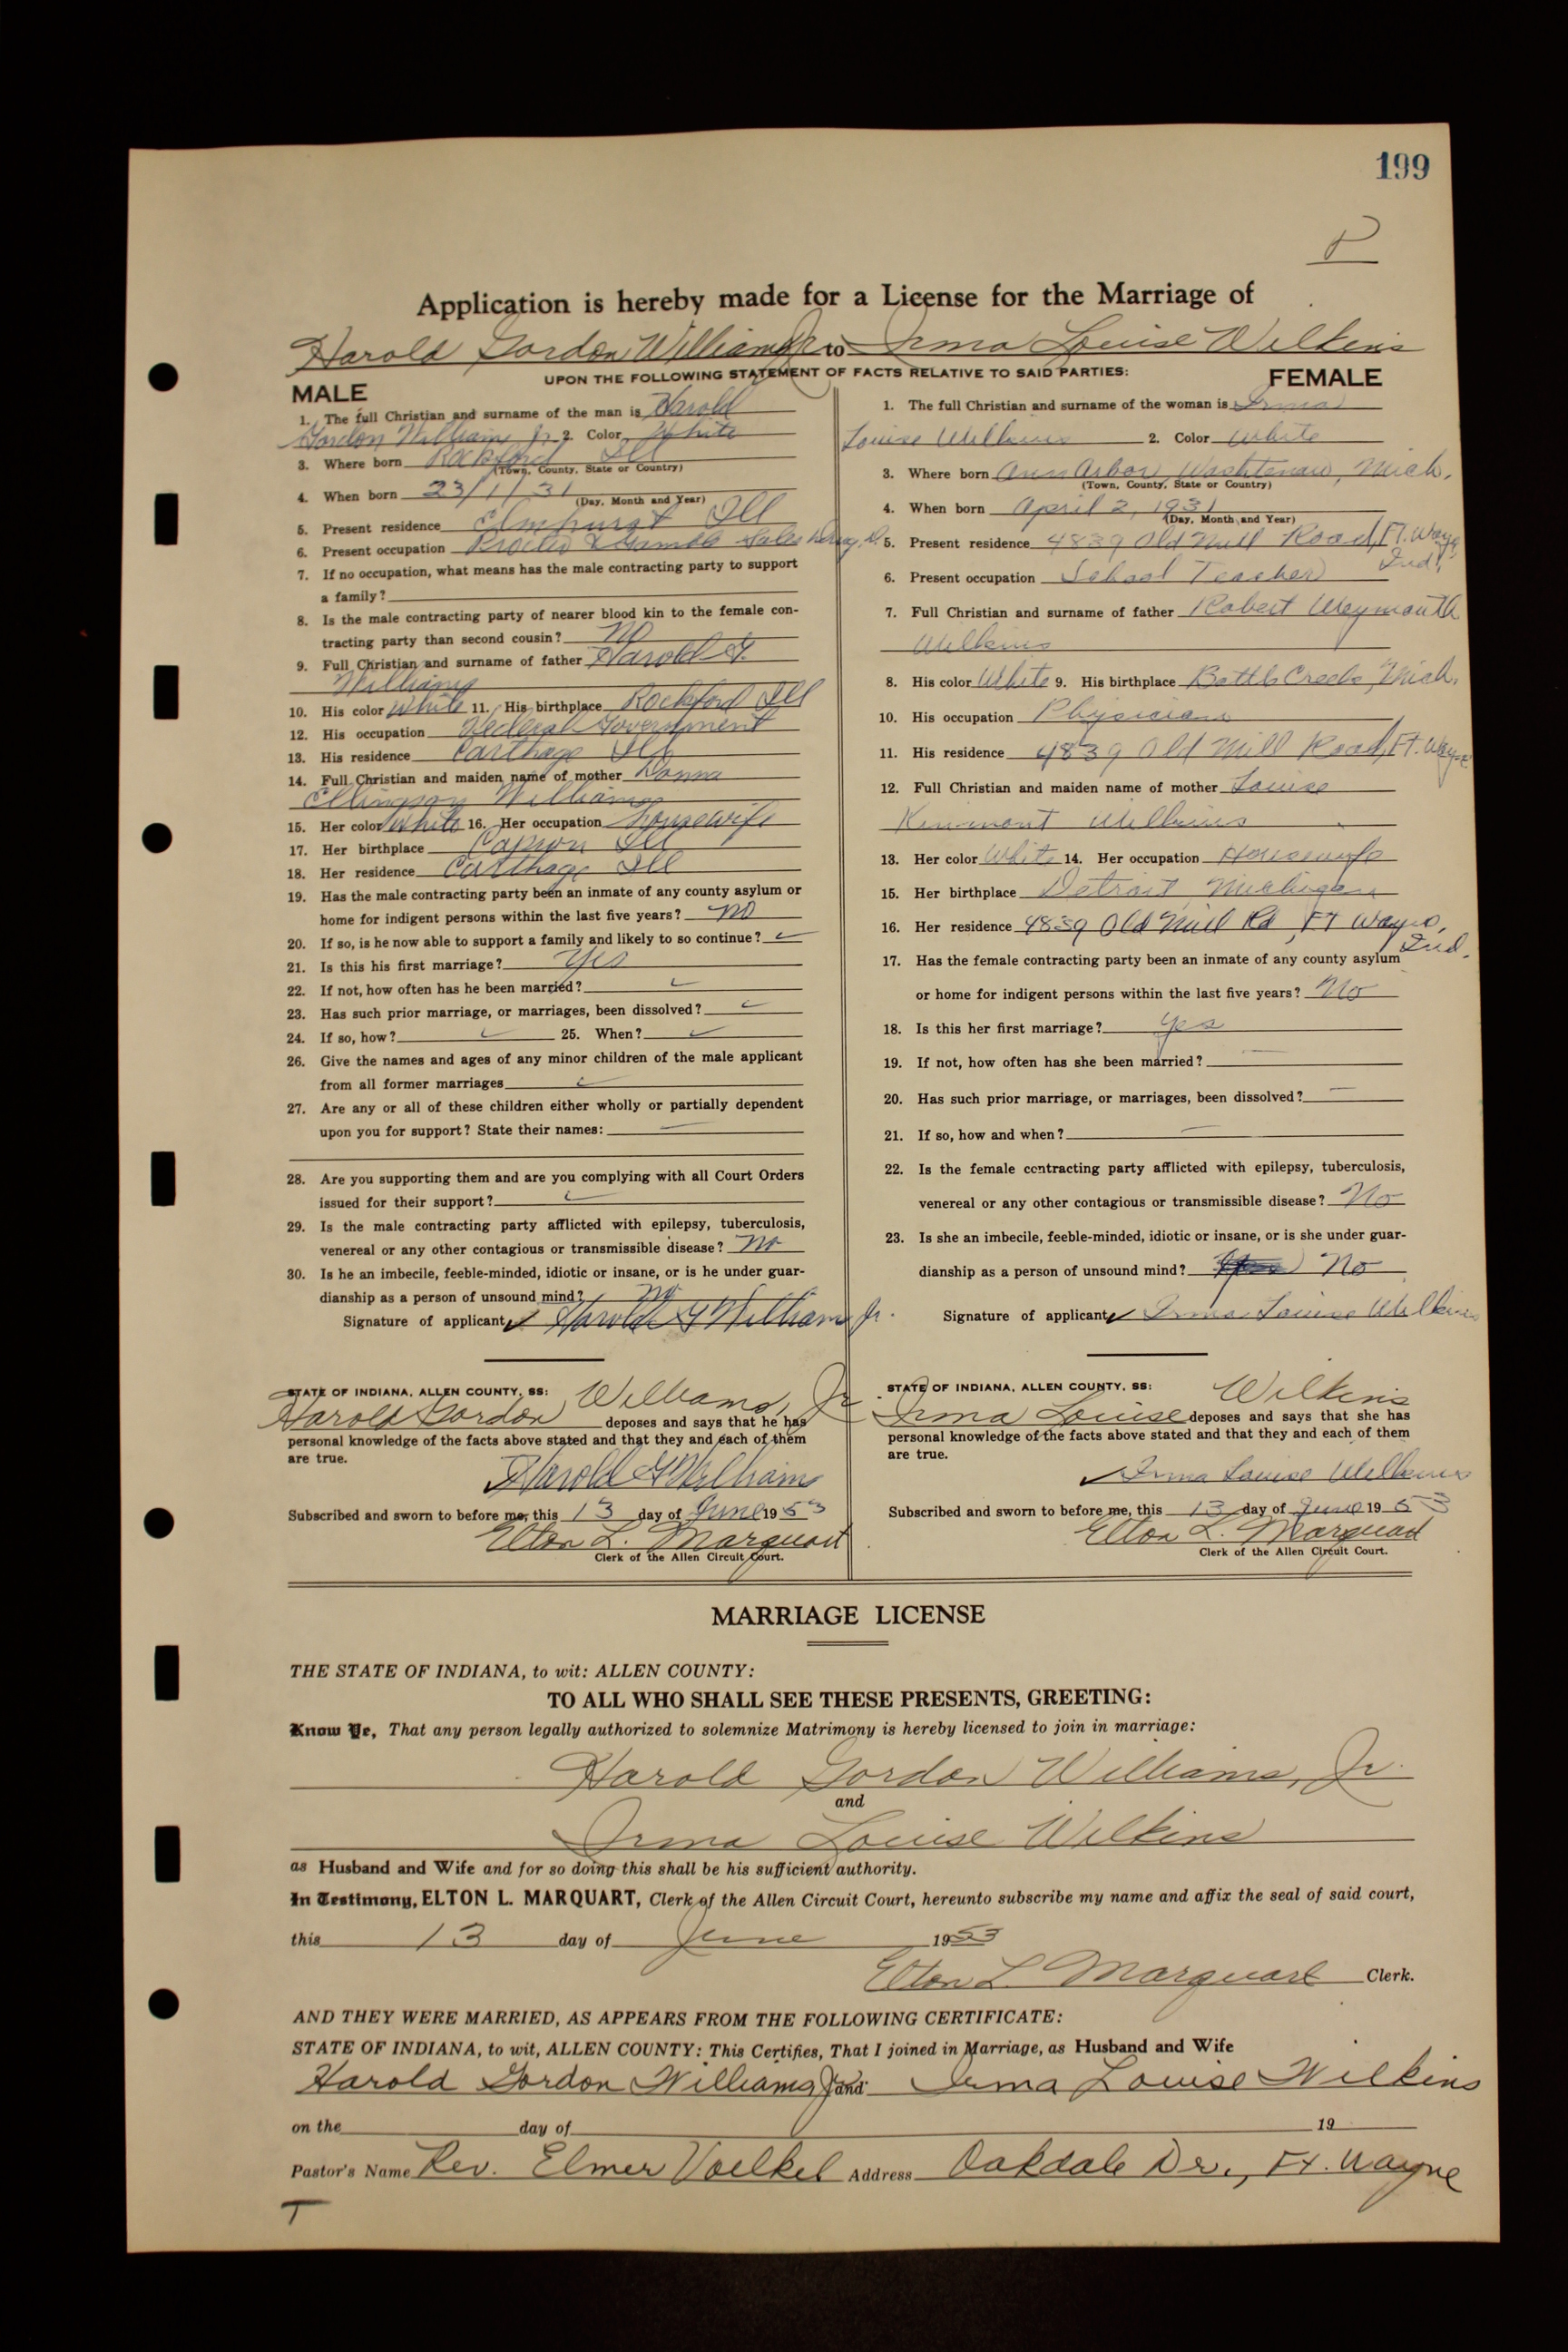 199
P
Application is hereby made for a License for the Marriage of
Harold Gordon Williams Jr to Irma Louise Wilkins
UPON THE FOLLOWING STATEMENT OF FACTS RELATIVE TO SAID PARTIES:
MALE
1. The full Christian and surname of the man is Harold
Gordon Williams Jr 2. Color White
3. Where born Rockford Ill
(Town, County, State or Country)
4. When born 23/1/31
(Day, Month and Year)
5. Present residence Elmhurst Ill
6. Present occupation Procter & Gamble Sales
7. If no occupation, what means has the male contracting party to support
a family?
8. Is the male contracting party of nearer blood kin to the female con-
tracting party than second cousin? no
9. Full Christian and surname of father Harold G.
Williams
10. His color White 11. His birthplace Rockford Ill
12. His occupation Federal Government
13. His residence Carthage Ill
14. Full Christian and maiden name of mother Donna
Ellingson Williams
15. Her color White 16. Her occupation housewife
17. Her birthplace Capron Ill
18. Her residence Carthage Ill
19. Has the male contracting party been an inmate of any county asylum or
home for indigent persons within the last five years? no
20. If so, is he now able to support a family and likely to so continue? ✓
21. Is this his first marriage? yes
22. If not, how often has he been married? ✓
23. Has such prior marriage, or marriages, been dissolved? ✓
24. If so, how? ✓ 25. When? ✓
26. Give the names and ages of any minor children of the male applicant
from all former marriages ✓
27. Are any or all of these children either wholly or partially dependent
upon you for support? State their names: —
28. Are you supporting them and are you complying with all Court Orders
issued for their support? ✓
29. Is the male contracting party afflicted with epilepsy, tuberculosis,
venereal or any other contagious or transmissible disease? no
30. Is he an imbecile, feeble-minded, idiotic or insane, or is he under guar-
dianship as a person of unsound mind? no
Signature of applicant ✓ Harold G Williams Jr.
STATE OF INDIANA, ALLEN COUNTY, SS: Williams, Jr
Harold Gordon deposes and says that he has
personal knowledge of the facts above stated and that they and each of them
are true.
Harold G Williams
Subscribed and sworn to before me, this 13 day of June 1953
Elton L. Marquart
Clerk of the Allen Circuit Court.
FEMALE
1. The full Christian and surname of the woman is Irma
Louise Wilkins 2. Color White
3. Where born Ann Arbor, Washtenaw, Mich.
(Town, County, State or Country)
4. When born April 2, 1931
(Day, Month and Year)
5. Present residence 4839 Old Mill Road, Ft. Wayne,
Ind.
6. Present occupation School Teacher
7. Full Christian and surname of father Robert Weymouth
Wilkins
8. His color White 9. His birthplace Battle Creek, Mich.
10. His occupation Physician
11. His residence 4839 Old Mill Road, Ft. Wayne
12. Full Christian and maiden name of mother Louise
Wilkins
13. Her color White 14. Her occupation Housewife
15. Her birthplace Detroit, Michigan
16. Her residence 4839 Old Mill Rd, Ft Wayne,
Ind.
17. Has the female contracting party been an inmate of any county asylum
or home for indigent persons within the last five years? No
18. Is this her first marriage? Yes
19. If not, how often has she been married? —
20. Has such prior marriage, or marriages, been dissolved? —
21. If so, how and when? —
22. Is the female contracting party afflicted with epilepsy, tuberculosis,
venereal or any other contagious or transmissible disease? No
23. Is she an imbecile, feeble-minded, idiotic or insane, or is she under guar-
dianship as a person of unsound mind? No
Signature of applicant ✓ Irma Louise Wilkins
STATE OF INDIANA, ALLEN COUNTY, SS: Wilkins
Irma Louise deposes and says that she has
personal knowledge of the facts above stated and that they and each of them
are true.
✓ Irma Louise Wilkins
Subscribed and sworn to before me, this 13 day of June 1953
Elton L. Marquart
Clerk of the Allen Circuit Court.
MARRIAGE LICENSE
THE STATE OF INDIANA, to wit: ALLEN COUNTY:
TO ALL WHO SHALL SEE THESE PRESENTS, GREETING:
Know Ye, That any person legally authorized to solemnize Matrimony is hereby licensed to join in marriage:
Harold Gordon Williams, Jr.
and
Irma Louise Wilkins
as Husband and Wife and for so doing this shall be his sufficient authority.
In Testimony, ELTON L. MARQUART, Clerk of the Allen Circuit Court, hereunto subscribe my name and affix the seal of said court,
this 13 day of June 1953
Elton L. Marquart Clerk.
AND THEY WERE MARRIED, AS APPEARS FROM THE FOLLOWING CERTIFICATE:
STATE OF INDIANA, to wit, ALLEN COUNTY: This Certifies, That I joined in Marriage, as Husband and Wife
Harold Gordon Williams Jr and Irma Louise Wilkins
on the day of 19
Pastor's Name Rev. Elmer Voelkel Address Oakdale Dr., Ft. Wayne
T